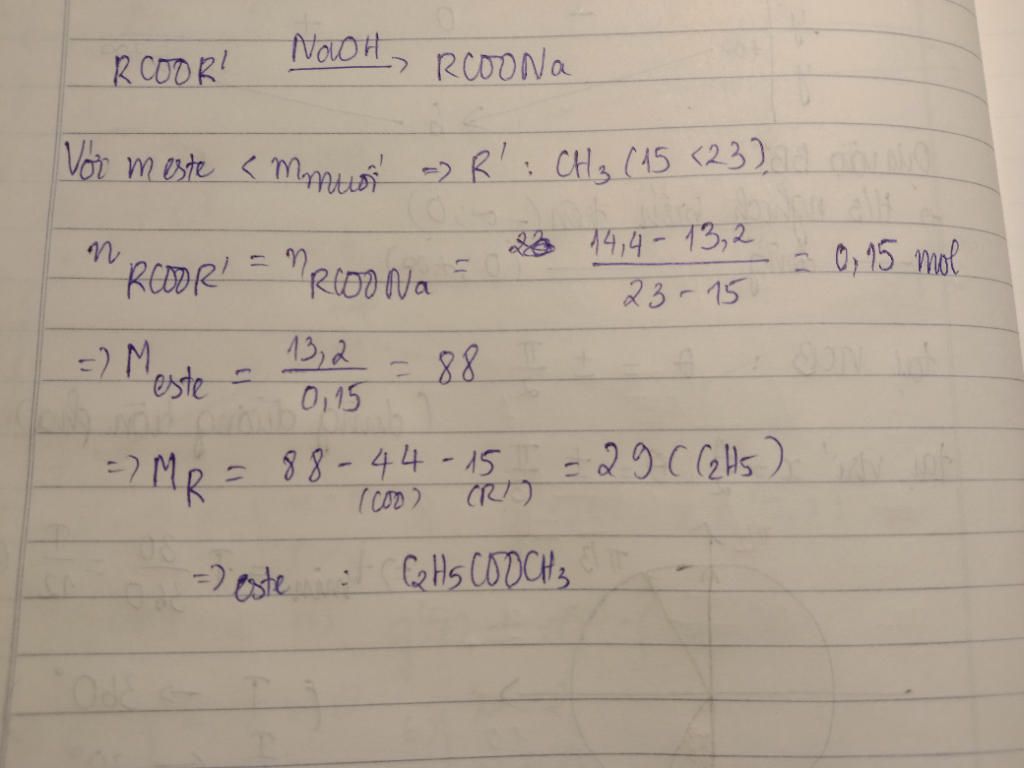 RCOOR' NaOH → RCOONa
Với m este < m muối => R' : CH3 (15 < 23).
n RCOOR' = n RCOONa = 14,4 - 13,2 / 23 - 15 = 0,15 mol
=> M este = 13,2 / 0,15 = 88
=> MR = 88 - 44 - 15 = 29 (C2H5)
(COO) (R')
=> este : C2H5COOCH3